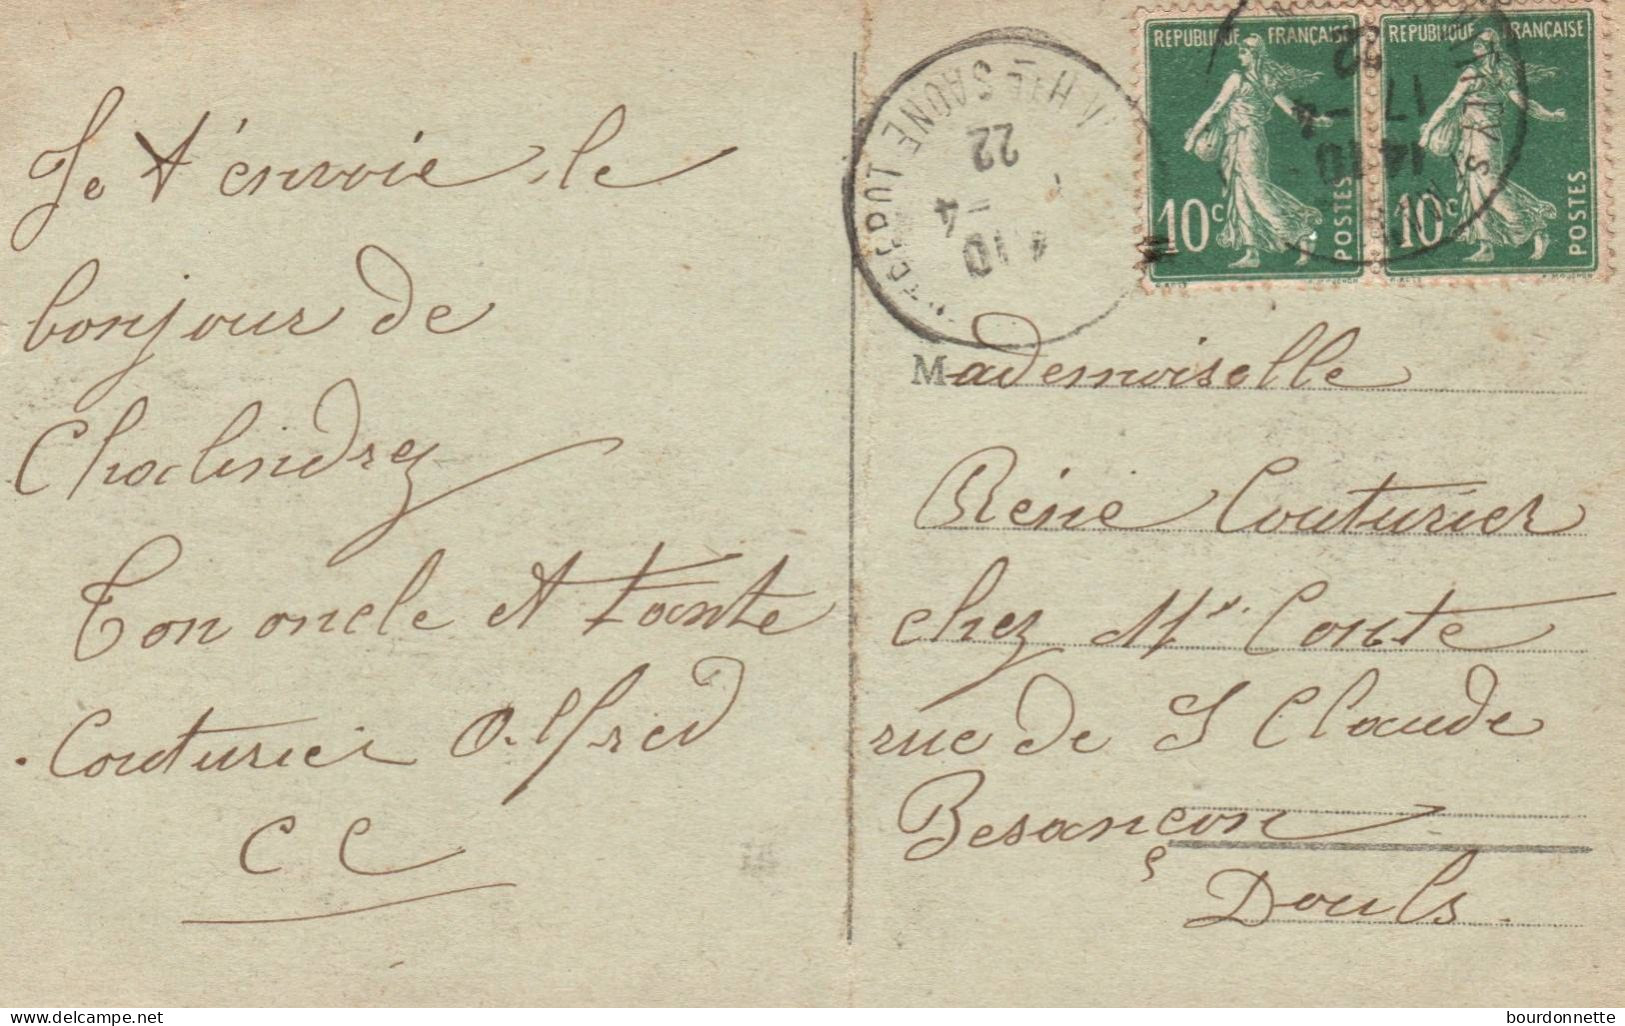 Je t'envoie le
bonjour de
Chalindrey
Ton oncle et tante
Couturier Alfred
C C
REPUBLIQUE FRANÇAISE
10c
POSTES
REPUBLIQUE FRANÇAISE
10c
POSTES
14 10
17 -4
22
Hte SAONE
22
-4
4 10
Mademoiselle
Réné Couturier
chez Mr Conte
rue de S Claude
Besançon
Doubs.
bourdonnette